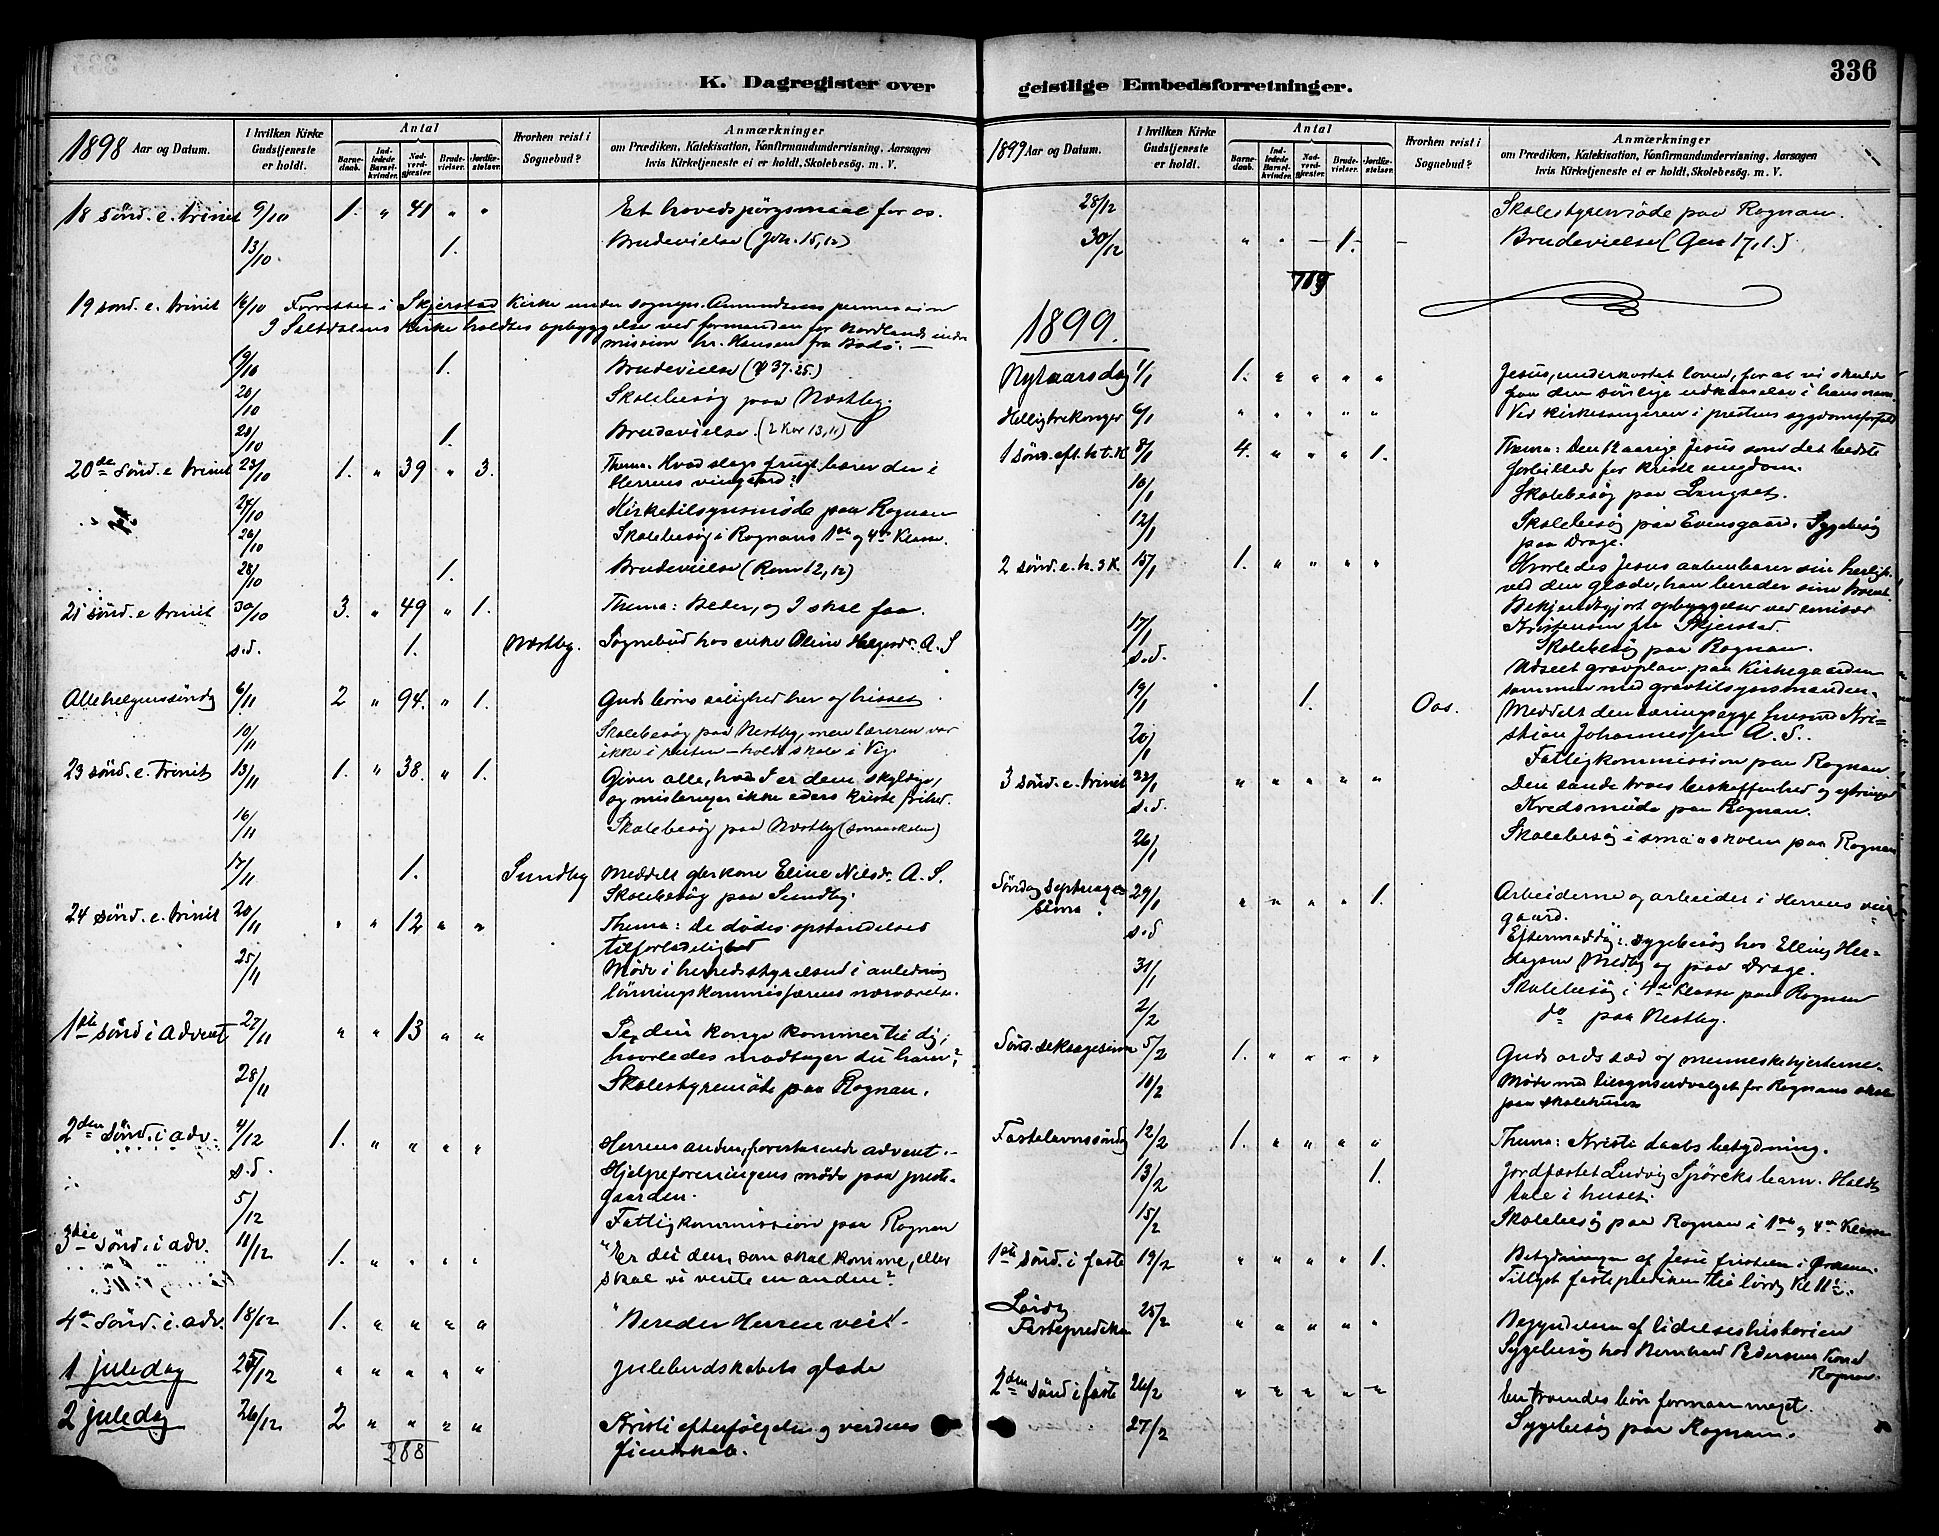 336
K. Dagregister over
geistlige Embedsforretninger.
1898 Aar og Datum.
I hvilken Kirke Gudstjeneste er holdt.
Antal
Barnedaab.
Indledede Barselkvinder.
Nadverdgjæster.
Brudevielser.
Jordfæstelser.
Hvorhen reist i Sognebud?
Anmærkninger
om Prædiken, Katekisation, Konfirmandundervisning. Aarsagen
hvis Kirketjeneste ei er holdt, Skolebesög. m. V.
18 sönd. e. trinit 9/10 1. " 41 " " Et hovedspörgsmaal for os.
13/10. 1. Brudevielse (Joh. 15,12)
19 sönd. e. trinit 16/10 Forretter i Skjerstad Kirke under sognepr. Amundsens permission
I Saltdalens Kirke holdtes opbyggelse ved formanden for Nordlands indre
mission hr. Hansen fra Bodö. —
19/10 1. Brudevielse (ψ 37.25.)
20/10 Skolebesög paa Næstby.
20/10 1. Brudevielse. (2 Kor 13,11)
20de sönd. e trinit 23/10 1. " 39 " 3. Thema. Hvad slags frugt bærer du i
Herrens vingaard?
24/10 Kirketilsynsmöde paa Rognan
26/10 Skolebesög i Rognans 1ste og 4de Klasse.
28/10 1. Brudevielse (Rom 12,12)
21 sönd. e trinit 30/10 3. " 49 " 1. Thema: Beder, og I skal faa.
s.d. 1. Næstby. Sognebud hos enke Oline A. S
Allehelgenssöndag 6/11 2 " 94. " 1. Guds börns salighed her og hisset
10/11 Skolebesög paa Nestby, men læreren var
ikke i – holdt skole i Vig.
23 sönd. e. trinit 13/11 1. " 38. " 1. Giver alle, hvad I er dem skyldige,
og misbruger ikke eders kristne frihed.
16/11 Skolebesög paa Næstby (smaaskolen)
17/11 1. Sundby Meddelt kone Eline Nilsdr. A. S.
Skolebesög paa Sundby.
24 sönd. e. trinit 20/11 " " 12 " " Thema: De dödes opstandelses
tilforladelighed
25/11 Möde i herredsstyrelsen i anledning
lönningskommissærens nærværelse.
1ste sönd i advent 27/11 " " 13 " " Se, din konge kommer til dig,
hvorledes modtager du ham?
28/11 Skolestyremöde paa Rognan.
2den sönd. i adv. 4/12 1. " " " " Herrens anden, forestaaende advent.
s.d. Hjelpeforeningens möde paa preste-
gaarden.
5/12 Fattigkommission paa Rognan
3die sönd. i adv. 11/12 1. " " " " "Er du den, som skal komme, eller
skal vi vente en anden?
4de sönd. i. adv. 18/12 1. " " " " "Bereder Herren vei!
1 juledag 25/12 " " " " " Julebudskabets glæde
2 juledag 26/12 2 " " " " Kristi efterfölgelse og verdens
fiendskab.
288
1899 Aar og Datum.
I hvilken Kirke Gudstjeneste er holdt.
Antal
Barnedaab.
Indledede Barselkvinder.
Nadverdgjæster.
Brudevielser.
Jordfæstelser.
Hvorhen reist i Sognebud?
Anmærkninger
om Prædiken, Katekisation, Konfirmandundervisning. Aarsagen
hvis Kirketjeneste ei er holdt, Skolebesög. m. V.
28/12 Skolestyremöde paa Rognan.
30/12 " " – 1. – Brudevielse (Gen 17,1.)
769
1899.
Nytaarsdag 1/1 1. " " " " Jesus, underkastet loven, for at vi skulde
faa den sönlige udkaarelse i hans navn.
Helligtrekonger 6/1 " " " " " Ved kirkesangeren i prestens sygdomsforfald
1 sönd. eft. h. t. K 8/1 4. " " " 1. Thema: Den 12 aarige Jesus som det bedste
forbillede for kristne ungdom.
10/1 Skolebesög paa Langset.
12/1 Skolebesög paa Evensgaard. Sygebesög
paa Drage.
2 sönd. e. h. 3 K. 15/1 1. " " " " Hvorledes Jesus aabenbarer sin herligh.
ved den glæde, han bereder sine
Bekjendtgjort opbyggelser ved emissær
Kristensen fra Skjerstad.
17/1 Skolebesög paa Rognan.
s.d. gravplan paa Kirkegaarden
sammen med gravtilsynsmanden.
19/1 1. Oas. Meddelt den tæringssyge husmd Kri-
stian Johannessen A. S.
20/1 Fattigkommission paa Rognan
3 sönd. e. trinit 22/1 " " " " " Den sande troes beskaffenhed og ytringer
s.d. Kredsmöde paa Rognan.
26/1 Skolebesög i smaaskolen paa Rognan
Söndag septuage-
sima. 29/1 " " " " 1. Arbeiderne og arbeidet i Herrens vin-
gaard.
s.d Eftermiddag: sygebesög hos Elling
Medby og paa Drage.
31/1 Skolebesög i 4de Klasse paa Rognan
2/2 do paa Nestby.
Sönd. seksagesima 5/2 1. " " " " Guds ords sæd og menneskehjerterne.
10/2 Möde med tilsynsudvalget for Rognans skole
paa skolehuset
Fastelavnssöndag 12/2 1. " " " " Thema: Kristi daabs betydning.
13/2 1. Jordfæstet Ludvig Spörcks barn. Holdt
tale i huset.
15/2 Skolebesög paa Rognan i 1ste og 4de Klasse
1ste sönd. i faste 19/2 " " " " 1. Betydningen af Jesu fristelse i Örkenen.
Tillyst fasteprediken til lördag Kl 11.
Lördag
Fasteprediken 25/2 " " " " " Begyndelsen af lidelseshistorien
Sygebesög hos Bernhard Pedersens Kone
Rognan.
2den sönd i faste 26/2 " " " " " En troendes bön formaar meget
27/2 Sygebesög paa Rognan.